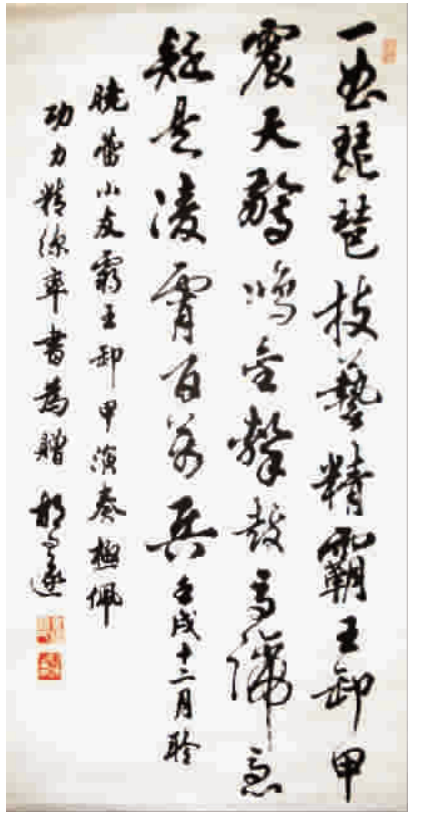 一曲琵琶技藝精霸王卸甲
震天驚鳴金擊鼓馬蹄急
疑是凌霄百萬兵壬戌十二月聆
曉蕾小友霸王卸甲演奏極佩
功力精深率書為贈 胡問遂